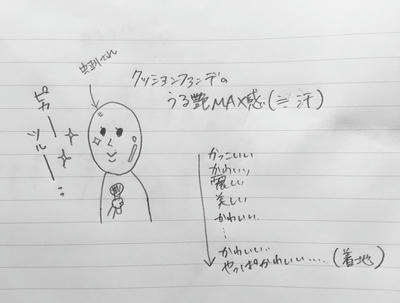 虫刺され
クッションファンデの
うる艶MAX感(≡汗)
ピカーー
ツルーー!!
かっこいい
かわいい
麗しい
美しい
かわいい
⋮
かわいい..
やっぱかわいい....(着地)